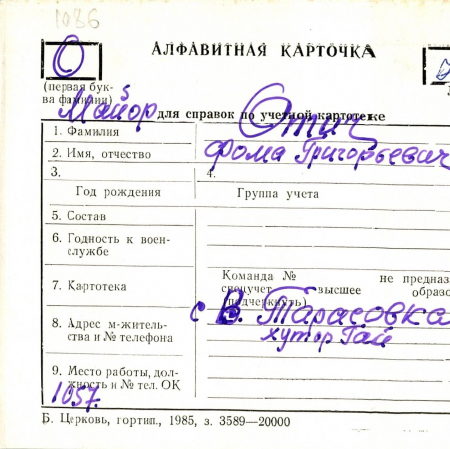 1086
АЛФАВИТНАЯ КАРТОЧКА
О
(первая бук-
ва фамилии)
Майор для справок по учетной картотеке
1. Фамилия Отич
2. Имя, отчество Фома Григорьевич
3. 4.
Год рождения Группа учета
5. Состав
6. Годность к воен-
службе
7. Картотека
Команда № не предназ
спецучет высшее образо
(подчеркнуть)
8. Адрес м-житель-
ства и № телефона
с В. Тарасовка
хутор Гай
9. Место работы, дол-
жность и № тел. ОК
1057.
Б. Церковь, гортип., 1985, з. 3589—20000